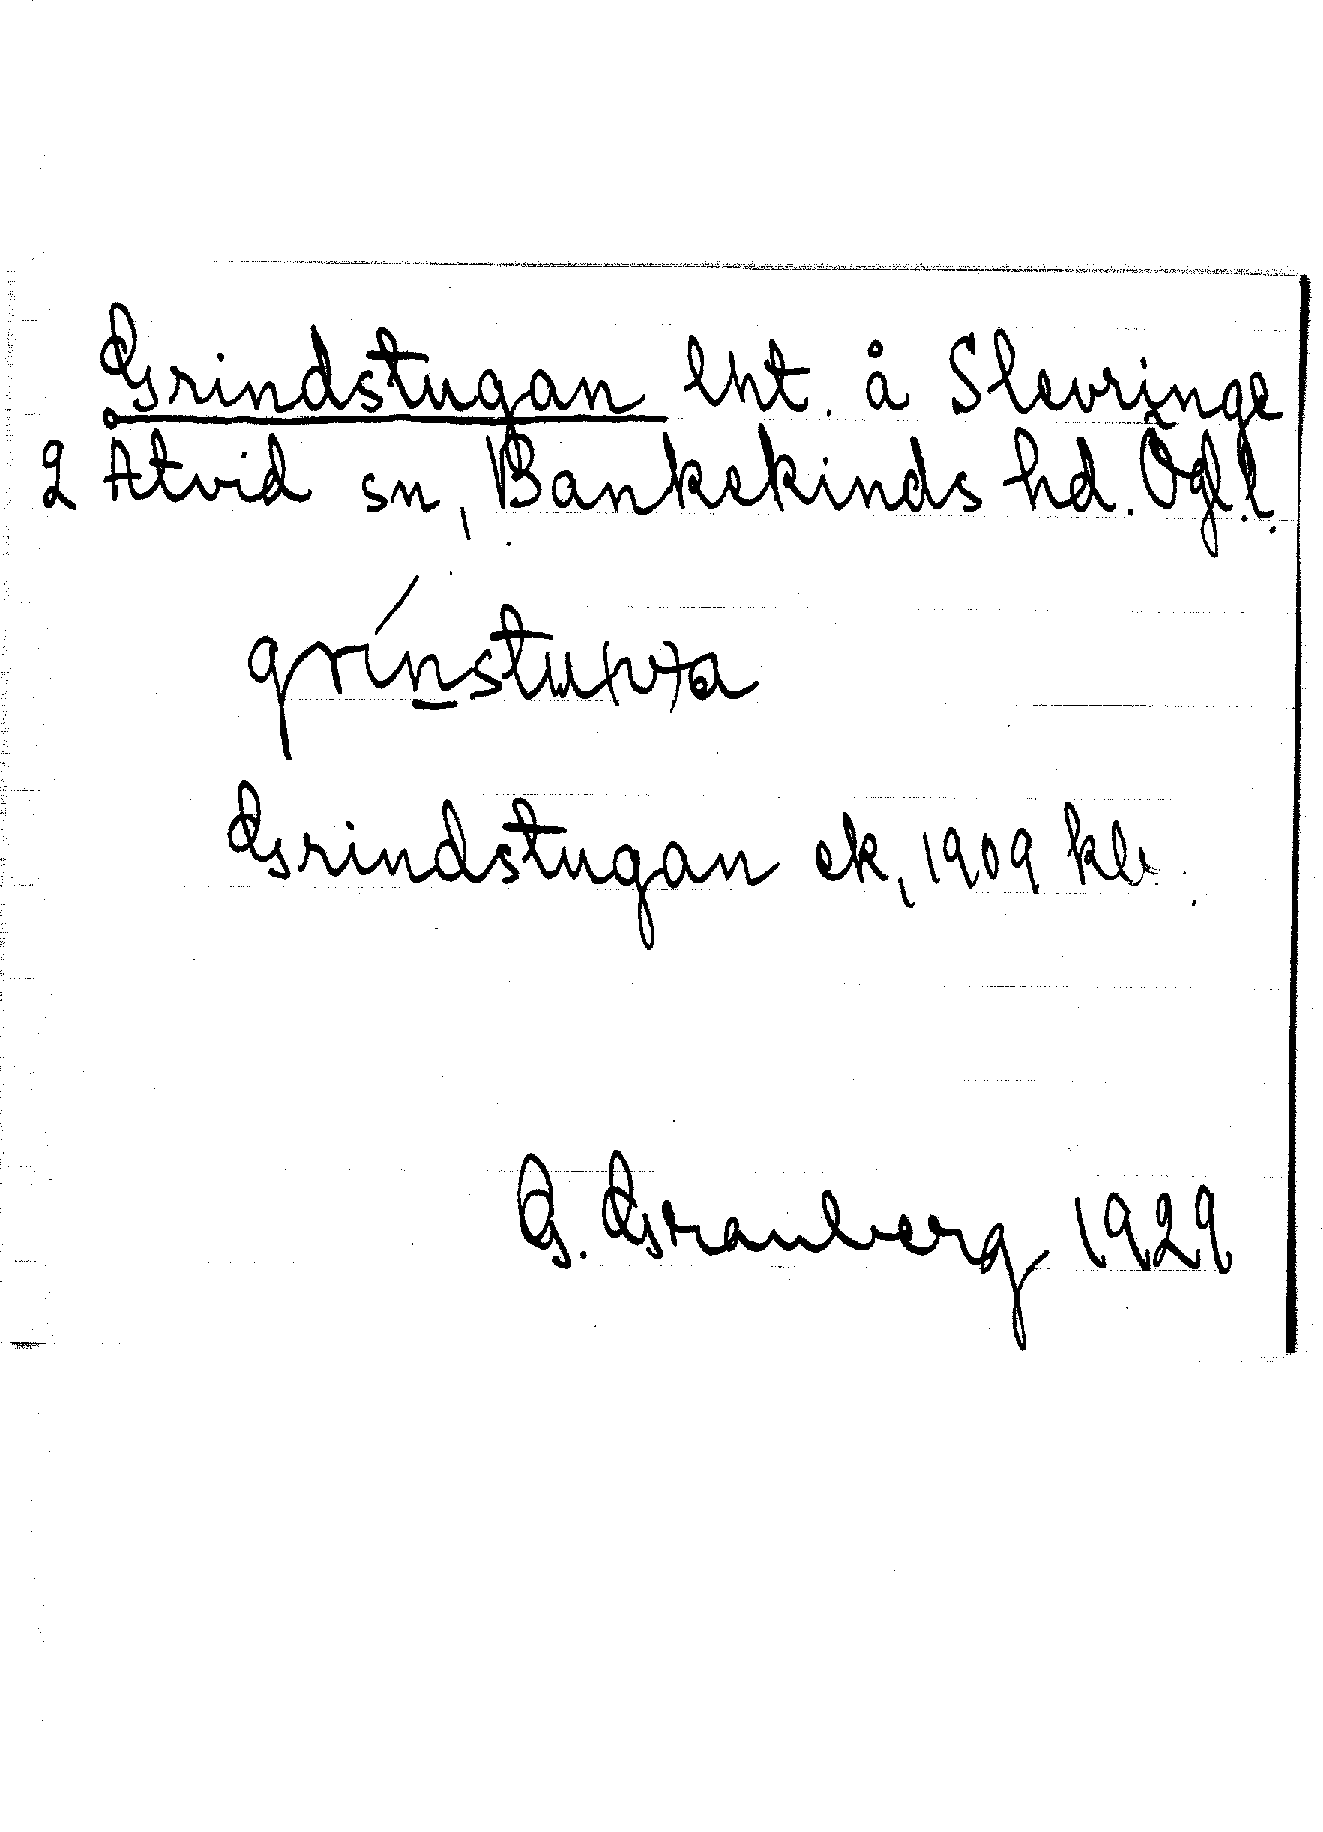 Grindstugan lht. å Slevringe
2 Åtvid sn, Bankekinds hd. Ögl.
Grindstugan ek, 1909 kbl.
G. Granberg 1929